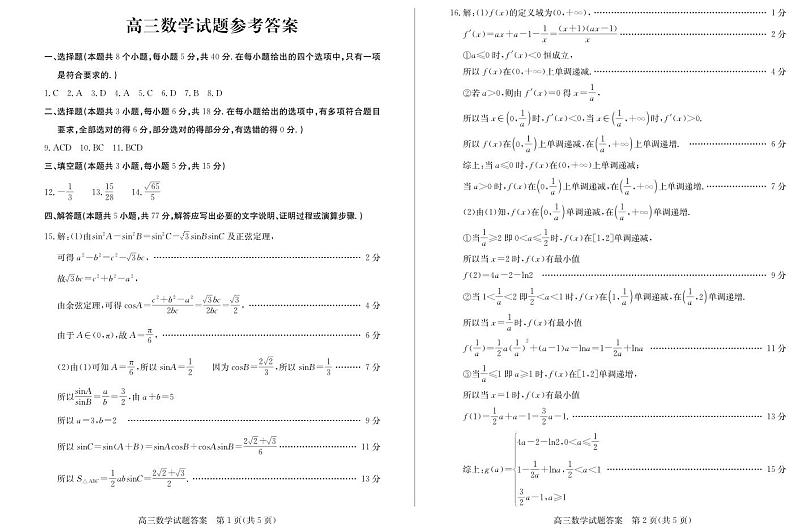 高三数学试题参考答案
一、选择题(本题共8个小题,每小题5分,共40分.在每小题给出的四个选项中,只有一项
是符合要求的.)
1.C 2.A 3.D 4.A 5.C 6.D 7.B 8.D
二、选择题(本题共3小题,每小题6分,共18分.在每小题给出的选项中,有多项符合题目
要求,全部选对的得6分,部分选对的得部分分,有选错的得0分.)
9.ACD 10.BC 11.BCD
三、填空题(本题共3小题,每小题5分,共15分)
12.-1/3 13.15/28 14.√65/5
四、解答题(本题共5小题,共77分,解答应写出必要的文字说明、证明过程或演算步骤.)
15.解:(1)由sin²A-sin²B=sin²C-√3sinBsinC及正弦定理,
可得a²-b²=c²-√3bc, 2分
故√3bc=c²+b²-a²,
由余弦定理,可得cosA=(c²+b²-a²)/2bc=√3bc/2bc=√3/2, 4分
由于A∈(0,π),故A=π/6, 6分
(2)由(1)可知A=π/6,所以sinA=1/2 因为cosB=2√2/3,所以sinB=1/3 7分
所以sinA/sinB=a/b=3/2,由a+b=5
所以a=3,b=2 9分
所以sinC=sin(A+B)=sinAcosB+cosAsinB=(2√2+√3)/6 11分
所以S△ABC=1/2absinC=(2√2+√3)/2. 13分
高三数学试题答案 第1页(共5页)
16.解:(1)f(x)的定义域为(0,+∞), 1分
f′(x)=ax+a-1-1/x=(x+1)(ax-1)/x 2分
①a≤0时,f′(x)<0恒成立,
所以f(x)在(0,+∞)上单调递减. 4分
②若a>0,则由f′(x)=0得x=1/a,
所以当x∈(0,1/a)时,f′(x)<0,当x∈(1/a,+∞)时,f′(x)>0.
所以f(x)在(0,1/a)上单调递减,在(1/a,+∞)上单调递增. 6分
综上:当a≤0时,f(x)在(0,+∞)上单调递减;
当a>0时,f(x)在(0,1/a)上单调递减,在(1/a,+∞)上单调递增. 7分
(2)由(1)知,f(x)在(0,1/a)单调递减,在(1/a,+∞)单调递增.
①当1/a≥2即0<a≤1/2时,f(x)在[1,2]单调递减,
所以当x=2时,f(x)有最小值
f(2)=4a-2-ln2 9分
②当1<1/a<2即1/2<a<1时,f(x)在(1,1/a)单调递减,在(1/a,2)单调递增.
所以当x=1/a时,f(x)有最小值
f(1/a)=1/2a(1/a)²+(a-1)a-lna=1-1/2a+lna 11分
③当1/a≤1即a≥1时,f(x)在[1,2]单调递增,
所以当x=1时,f(x)有最小值
f(1)=1/2a+a-1=3/2a-1. 13分
综上:g(a)={4a-2-ln2,0<a≤1/2
1-1/2a+lna,1/2<a<1 15分
3/2a-1,a≥1
高三数学试题答案 第2页(共5页)